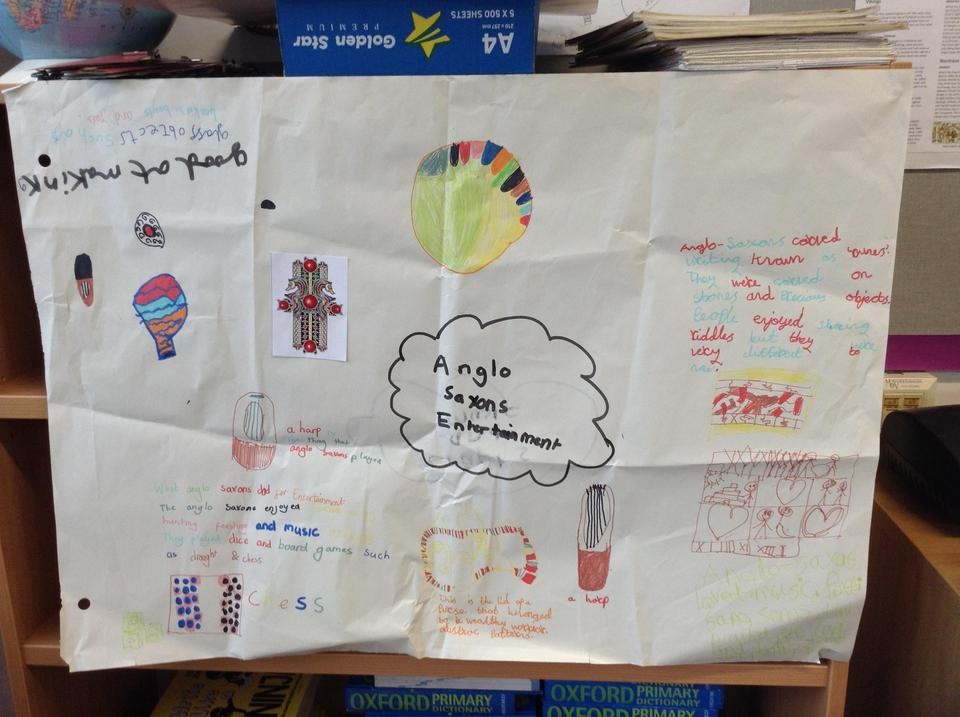 Golden Star
PREMIUM
A4
210 x 297 mm
5 X 500 SHEETS
good at making
glass objects such as
beakers, bowls and
Anglo
Saxons
Entertainment
Anglo-Saxons carved
writing known as 'runes'.
They were carved on
stones and precious objects.
People enjoyed sharing
riddles but they were
very different to
a harp
thing that
anglo saxons played
What anglo saxons did for Entertainment
The anglo saxons enjoyed
hunting feasting and music
They played dice and board games such
as draught & chess
Chess
This is the lid of a
purse that belonged
to a wealthy
a harp
Anglo-saxons
loved music.
OXFORD PRIMARY
DICTIONARY
OXFORD PRIMARY
DICTIONARY
OXFORD PRIMARY